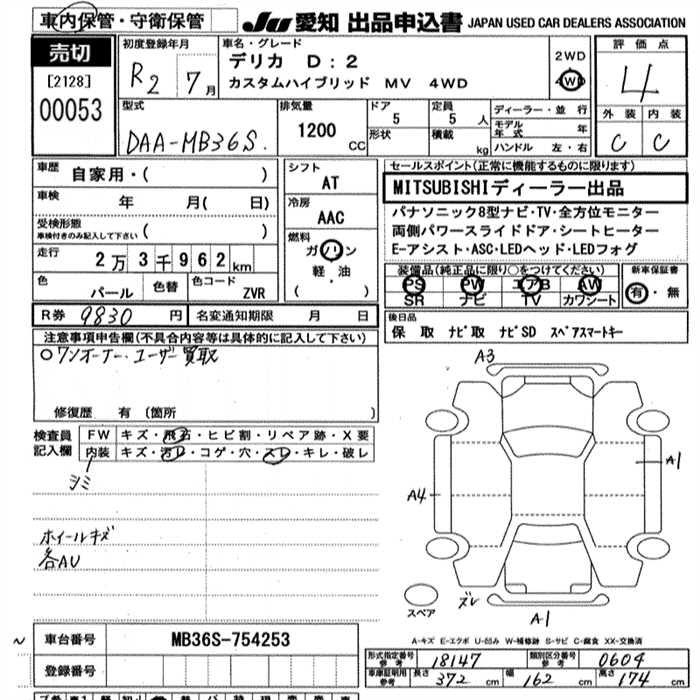 車内保管・守衛保管
JU 愛知 出品申込書 JAPAN USED CAR DEALERS ASSOCIATION
売切
[2128]
00053
初度登録年月
R2 7月
車名・グレード
デリカ D:2
カスタムハイブリッド MV 4WD
2WD
4WD
評価点
4
外装 内装
C C
型式
DAA-MB36S.
排気量
1200 CC
ドア
5
形状
定員
5 人
積載
kg
ディーラー・並行
モデル年式 年
ハンドル 左・右
車歴 自家用・( )
車検 年 月( 日)
受検形態
車検付きのみ記入して下さい ( )
走行 2万3千962km
色 パール
色替
色コード ZVR
シフト
AT
冷房
AAC
燃料
ガソリン
軽・油
( )
セールスポイント(正常に機能するものに限ります)
MITSUBISHIディーラー出品
パナソニック8型ナビ・TV・全方位モニター
両側パワースライドドア・シートヒーター
E-アシスト・ASC・LEDヘッド・LEDフォグ
装備品(純正品に限り○をつけてください)
PS PW エアB AW
SR ナビ TV カワシート
新車保証書
有・無
R券 9830 円
名変通知期限 月 日
後日品
保 取 ナビ取 ナビSD スペアスマートキー
注意事項申告欄(不具合内容等は具体的に記入して下さい)
○ワンオーナー、ユーザー買取
修復歴 有 (箇所 )
検査員記入欄
FW キズ・飛石・ヒビ割・リペア跡・X要
内装 キズ・汚レ・コゲ・穴・スレ・キレ・破レ
シミ
ホイールキズ
各AU
A3
A1
A4
スペア
ズレ
A1
A-キズ E-エクボ U-凹み W-補修跡 S-サビ C-腐食 XX-交換済
車台番号 MB36S-754253
登録番号
形式指定番号 参考 18147
類別区分番号 参考 0604
車庫証明用 参考 長さ 372 cm 幅 162 cm 高さ 174 cm